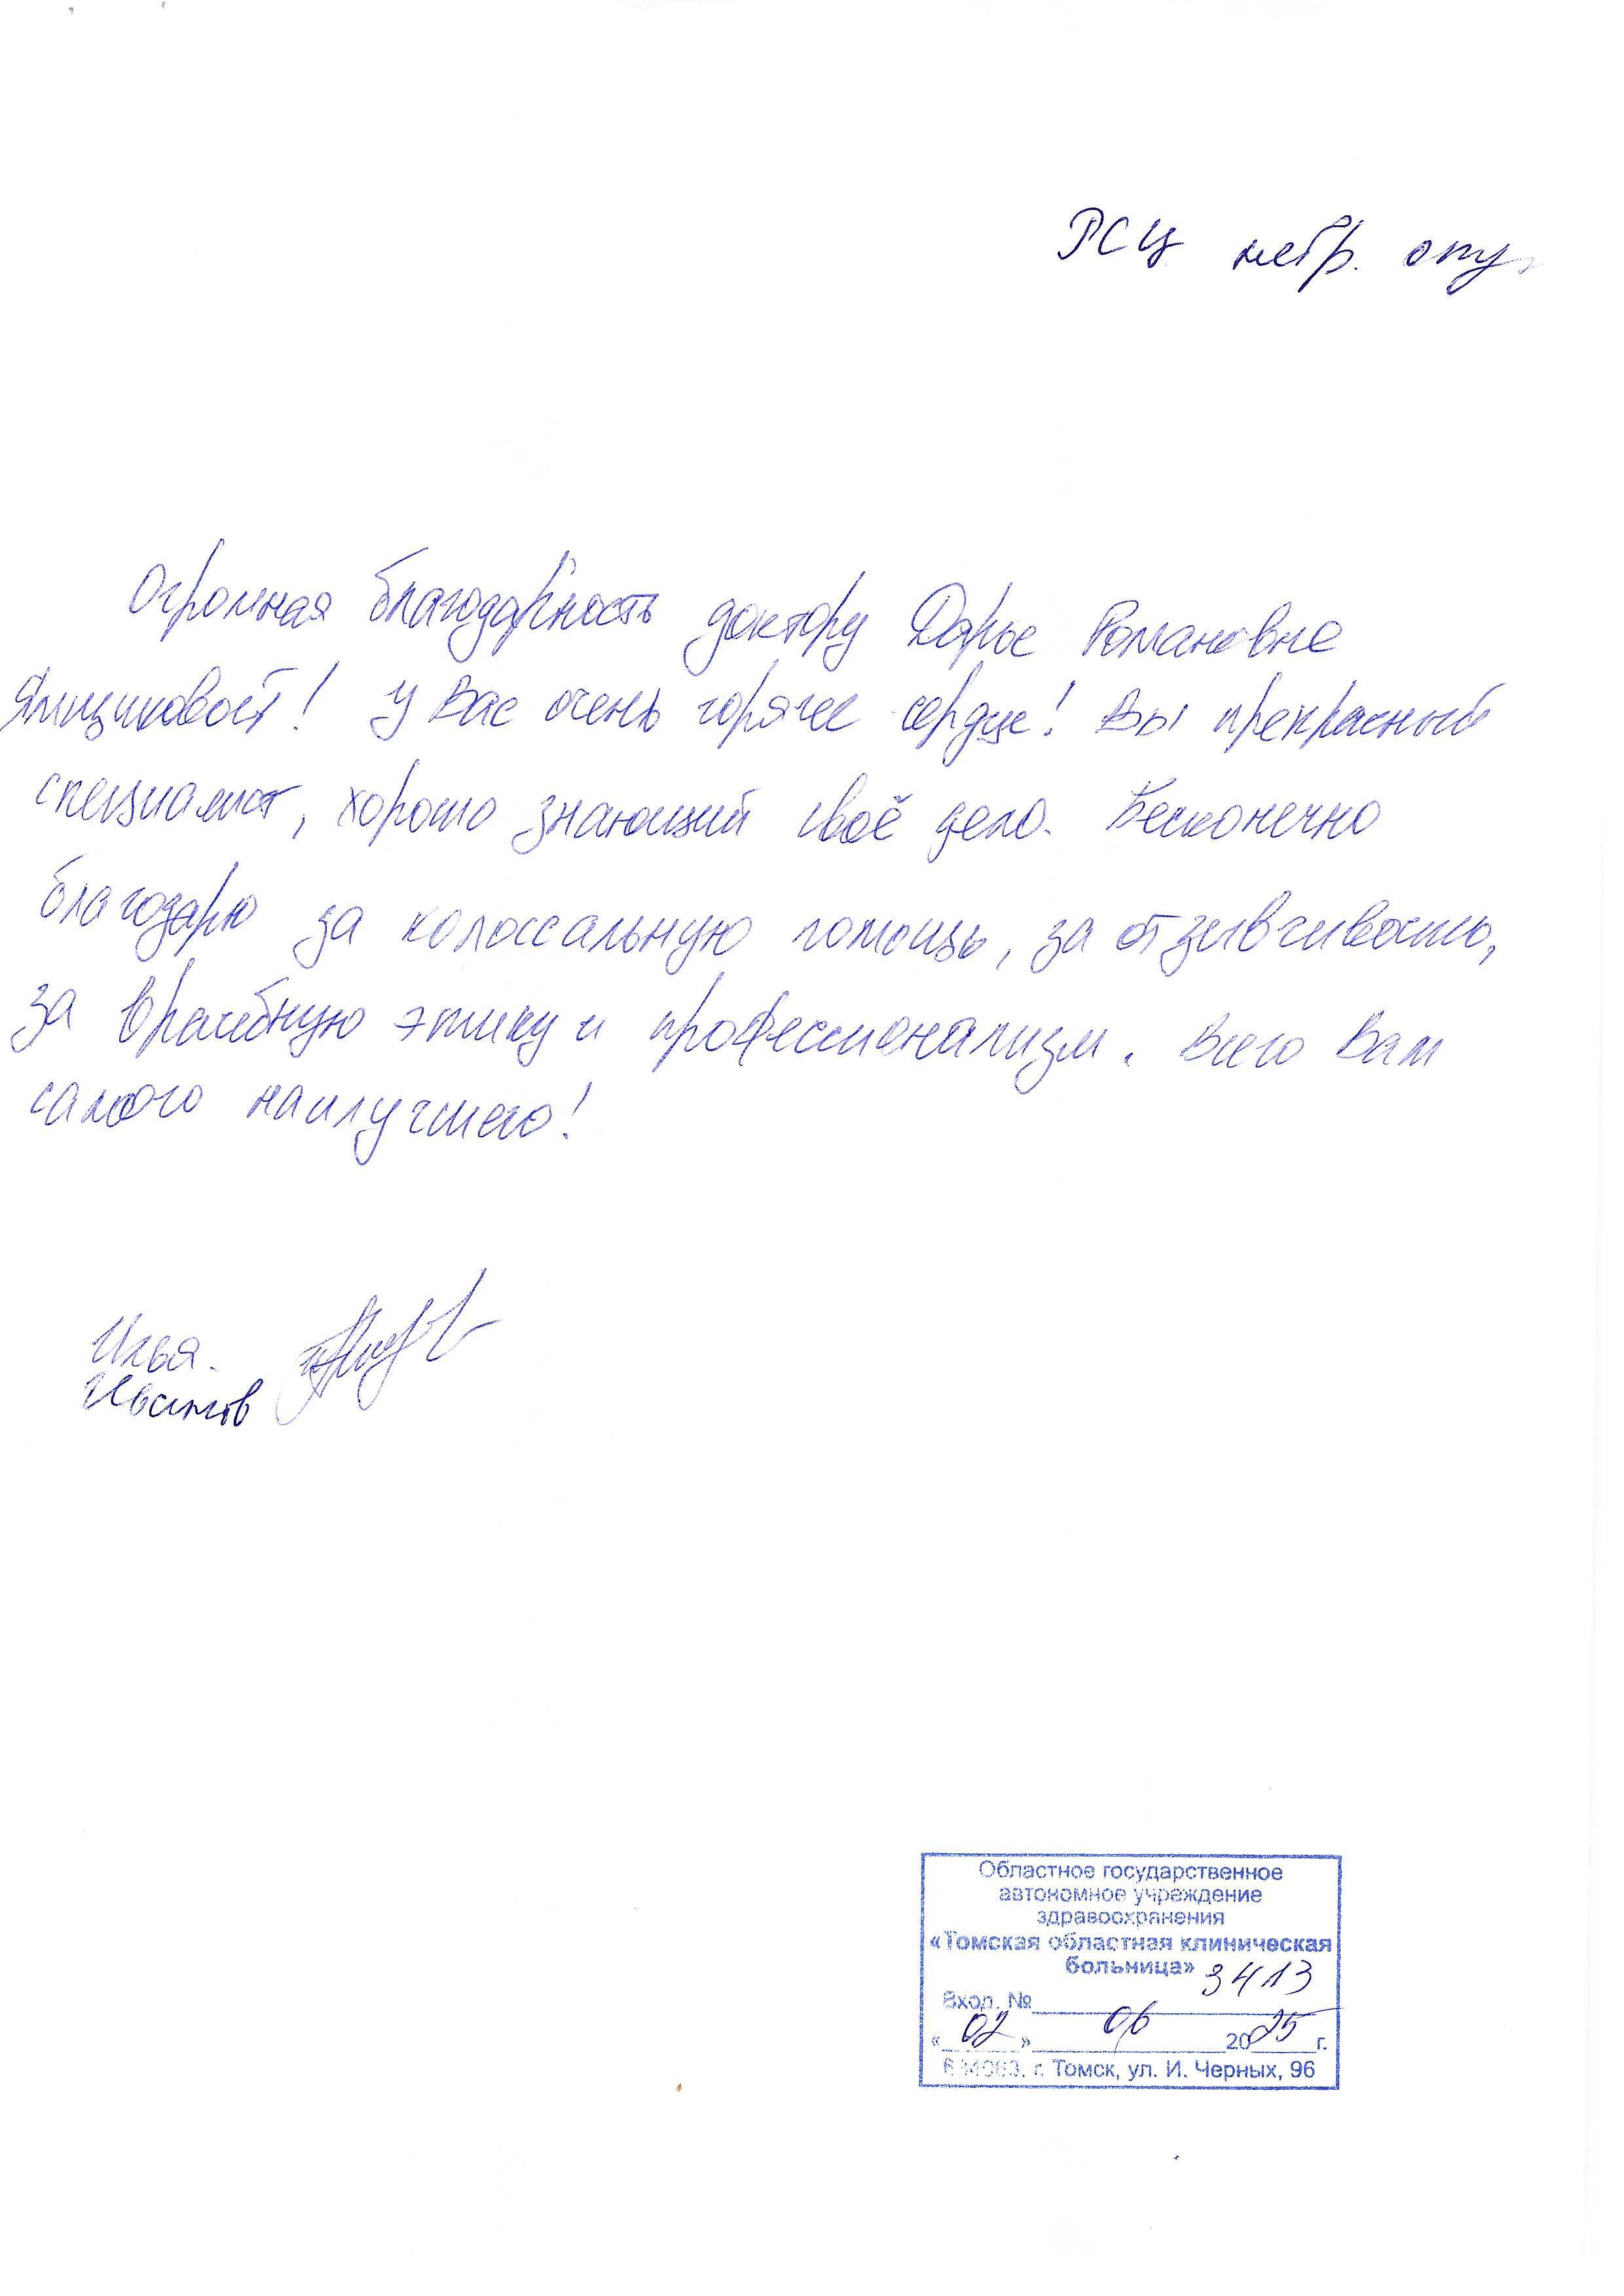 РСЦ невр. отд.
Огромная благодарность доктору Дарье Романовне
Ямщиковой! У Вас очень горячее сердце! Вы прекрасный
специалист, хорошо знающий своё дело. Бесконечно
благодарю за колоссальную помощь, за отзывчивость,
за врачебную этику и профессионализм. Всего Вам
самого наилучшего!
Илья.
Областное государственное
автономное учреждение
здравоохранения
«Томская областная клиническая
больница» 3413
Вход. №
«02» 06 2025 г.
634063, г. Томск, ул. И. Черных, 96